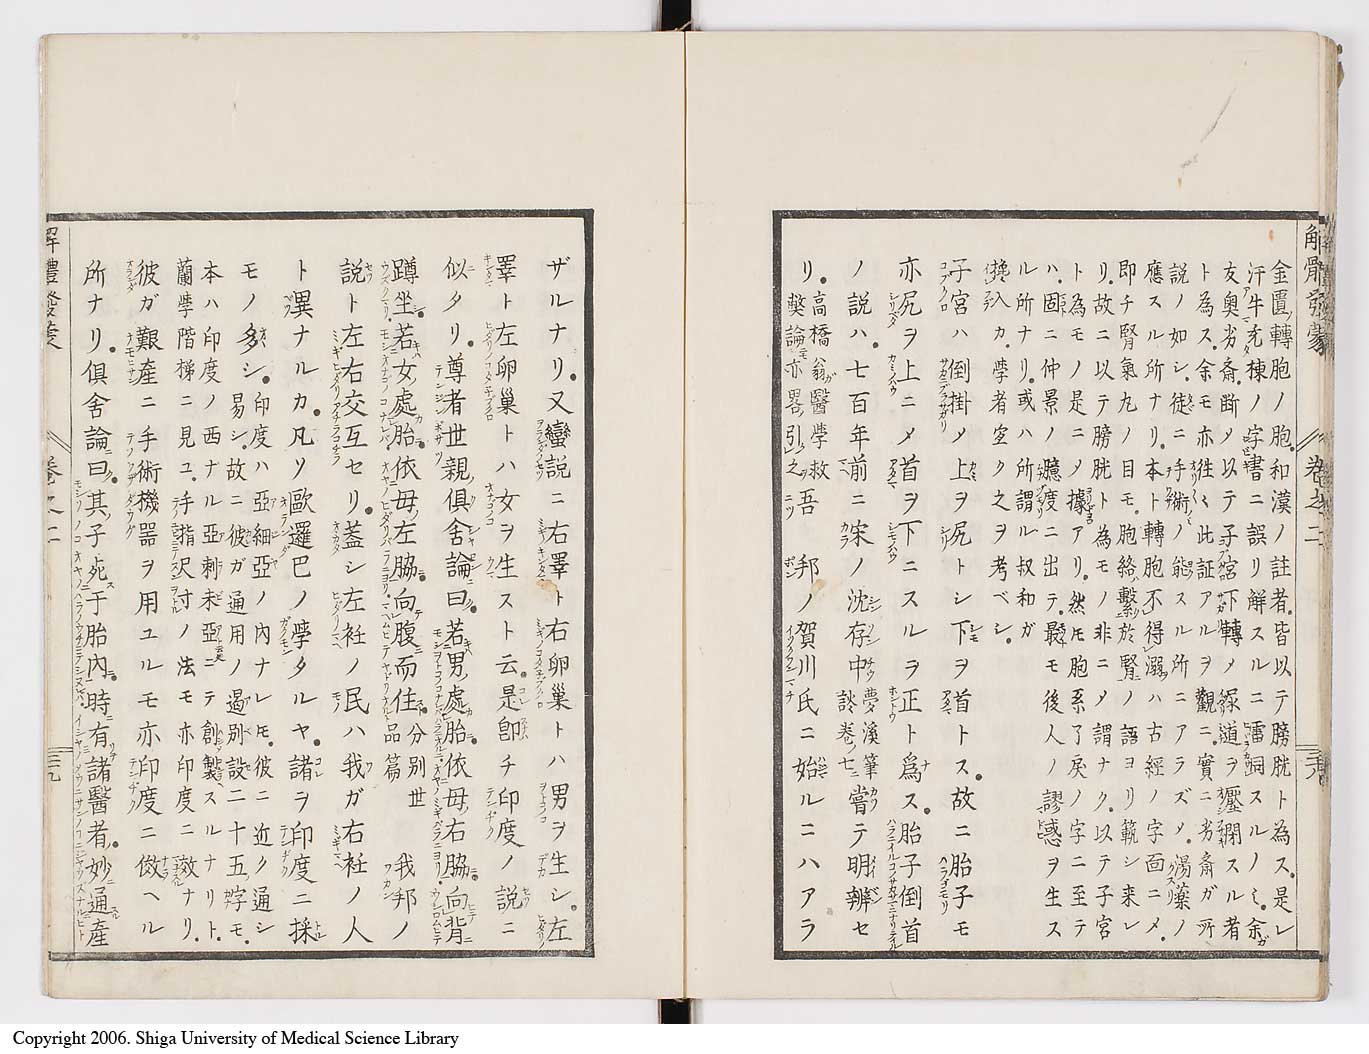 解體發蒙
卷之二
三十八
金匱ノ轉胞ノ胞。和漢ノ註者。皆以テ膀胱ト為ス。是レ
汗牛充棟ノ字書ニ誤リ解スルニ雷同スルノミ。余ガ
友奧劣齋。斷メ以テ子宮下轉メ尿道ヲ壓閉スル者
ト為ス。余モ亦往〻此証アルヲ觀ニ。實ニ劣齋ガ所
説ノ如シ。徒ニ手術ノ能スル所ニアラズメ。湯藥ノ
應スル所ナリ。本ト轉胞不得溺ハ古經ノ字面ニメ。
即チ腎氣丸ノ目モ。胞絡繫於腎ノ語ヨリ範シ来レ
リ。故ニ以テ膀胱ト為モノ非ニメ謂ナク。以テ子宮
ト為モノ是ニメ據アリ。然モ胞系了戾ノ字ニ至テ
ハ。固ニ仲景ノ臆度ニ出テ。最モ後人ノ謬惑ヲ生ス
ル所ナリ。或ハ所謂ル叔和ガ
攙入カ。學者空ク之ヲ考ベシ。
子宮ハ倒掛メ上ヲ尻トシ下ヲ首トス。故ニ胎子モ
亦尻ヲ上ニメ首ヲ下ニスルヲ正ト爲ス。胎子倒首
ノ説ハ七百年前ニ宋ノ沈存中夢溪筆談卷ノ七ニ嘗テ明辨セ
リ。高橋翁ガ醫學救弊論ニモ亦畧之ヲ引ツ吾邦ノ賀川氏ニ始ルニハアラ
ザルナリ。又蠻説ニ右睪ト右卵巢トハ男ヲ生シ。左
睪ト左卵巢トハ女ヲ生スト云。是卽チ印度ノ説ニ
似タリ。尊者世親俱舍論曰。若男處胎。依母右脇。向背
蹲坐。若女處胎。依母左脇。向腹而住分別世品篇我邦ノ
説ト左右交互セリ。蓋シ左衽ノ民ハ我ガ右衽ノ人
ト異ナルカ。凡ソ歐邏巴ノ學タルヤ。諸ヲ印度ニ採
モノ多シ。印度ハ亞細亞ノ內ナレモ。彼ニ近ク通シ
易シ。故ニ彼ガ通用ノ遏別設二十五字モ。
本ハ印度ノ西ナル亞刺未亞ニテ創製スルナリト。
蘭學階梯ニ見ユ。手指尺寸ノ法モ亦印度ニ效ナリ。
彼ガ艱産ニ手術機器ヲ用ユルモ亦印度ニ傚ヘル
所ナリ。俱舍論曰。其子死于胎內。時有諸醫者。妙通産
解體發蒙
卷之二
三十九
Copyright 2006. Shiga University of Medical Science Library